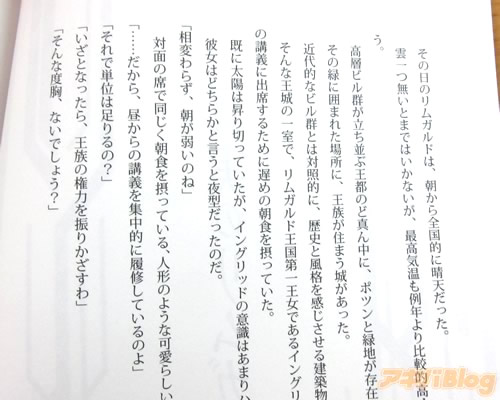 その日のリムガルドは、朝から全国的に晴天だった。
雲一つ無いとまではいかないが、最高気温も例年より比較的高
う。
高層ビル群が立ち並ぶ王都のど真ん中に、ポツンと緑地が存在
その緑に囲まれた場所に、王族が住まう城があった。
近代的なビル群とは対照的に、歴史と風格を感じさせる建築物
そんな王城の一室で、リムガルド王国第一王女であるイングリ
の講義に出席するために遅めの朝食を摂っていた。
既に太陽は昇り切っていたが、イングリッドの意識はあまりハ
彼女はどちらかと言うと夜型だったのだ。
「相変わらず、朝が弱いのね」
対面の席で同じく朝食を摂っている、人形のような可愛らしい
「……だから、昼からの講義を集中的に履修しているのよ」
「それで単位は足りるの？」
「いざとなったら、王族の権力を振りかざすわ」
「そんな度胸、ないでしょう？」
アキバBlog